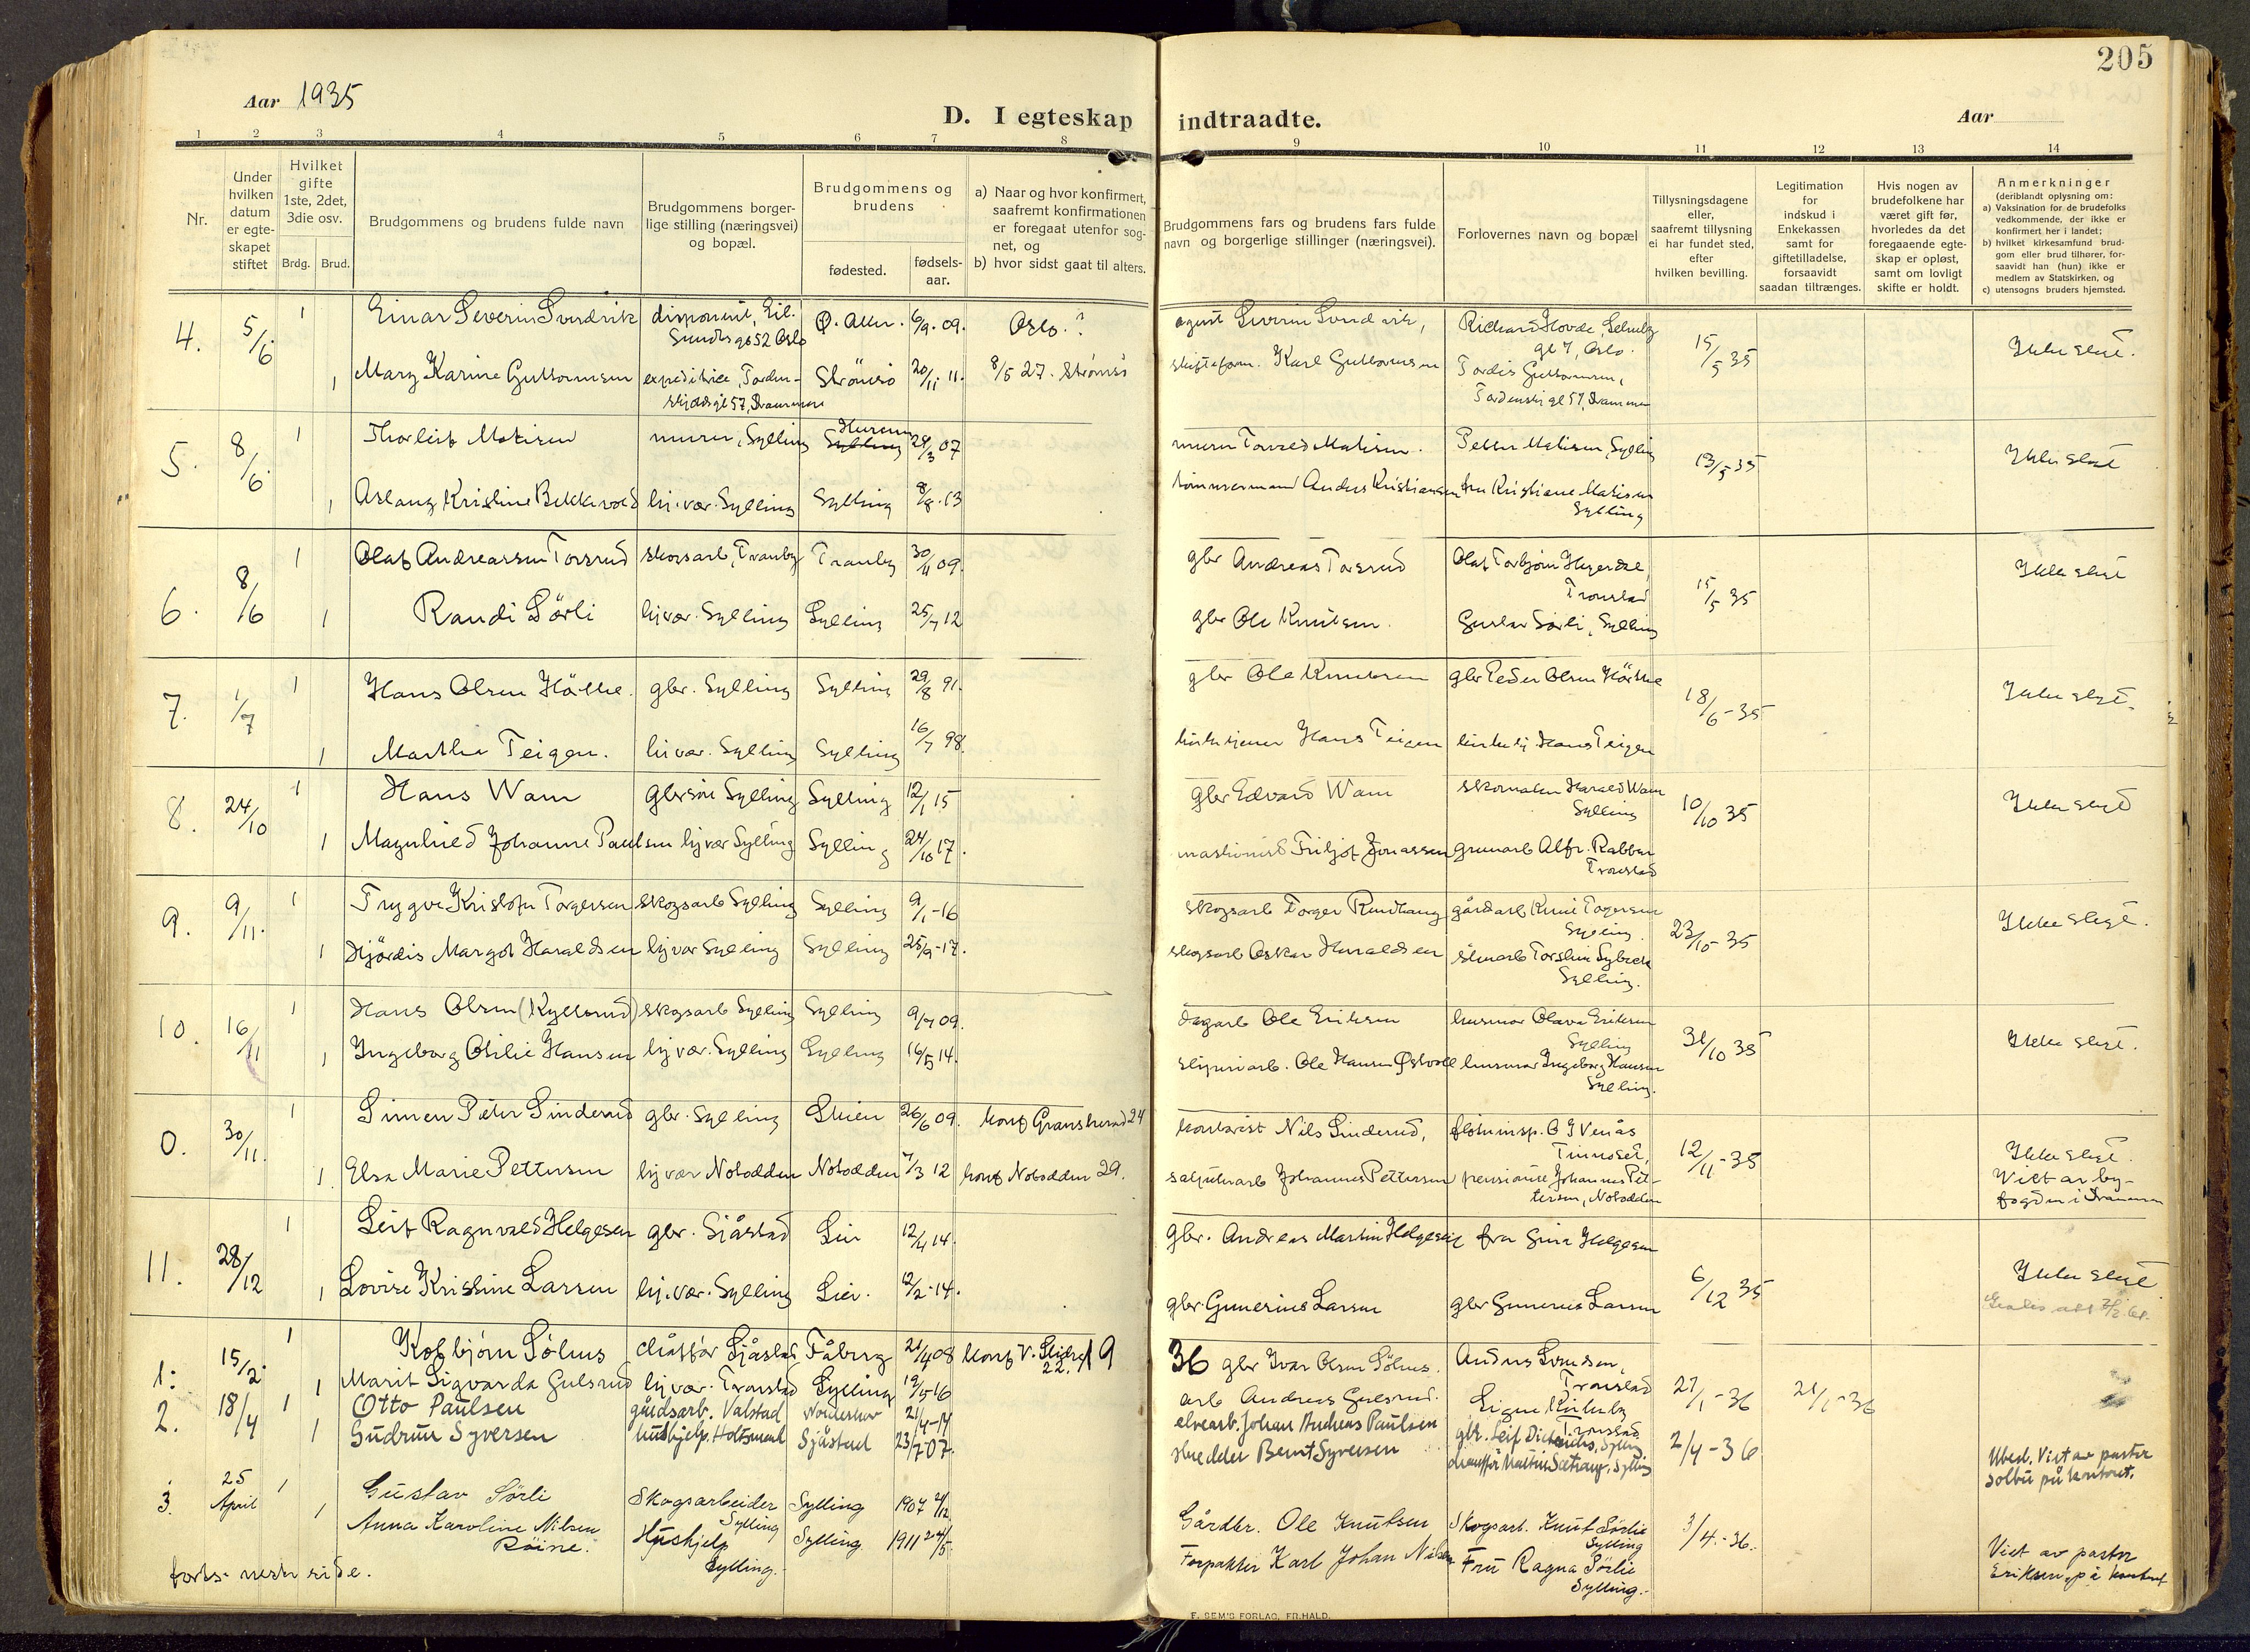 205
Aar 1935
D. I egteskap indtraadte.
Aar
1 2 3 4 5 6 7 8 9 10 11 12 13 14
Nr.
Under hvilken datum er egte-skapet stiftet
Hvilket gifte 1ste, 2det, 3die osv.
Brdg. Brud.
Brudgommens og brudens fulde navn
Brudgommens borger-lige stilling (næringsvei) og bopæl.
Brudgommens og brudens
fødested.
fødsels-aar.
a) Naar og hvor konfirmert, saafremt konfirmationen er foregaat utenfor sog-net, og
b) hvor sidst gaat til alters.
Brudgommens fars og brudens fars fulde navn og borgerlige stillinger (næringsvei).
Forlovernes navn og bopæl
Tillysningsdagene eller, saafremt tillysning ei har fundet sted, efter hvilken bevilling.
Legitimation for indskud i Enkekassen samt for giftetilladelse, forsaavidt saadan tiltrænges.
Hvis nogen av brudefolkene har været gift før, hvorledes da det foregaaende egte-skap er opløst, samt om lovligt skifte er holdt.
Anmerkninger
(deriblandt oplysning om:
a) Vaksination for de brudefolks vedkommende, der ikke er konfirmert her i landet;
b) hvilket kirkesamfund brud-gom eller brud tilhører, for-saavidt han (hun) ikke er medlem av Statskirken, og
c) utensogns bruders hjemsted.
4. 5/6. 1 Einar Severin Svendvik disponent, Eil. Sundts gt 52 Oslo 6/9. 09. Oslo. ? agent Severin Svendvik, Richard Hovde, gt 7, Oslo. 15/5 35 Ikke slegt.
1 Mary Karine Guttormsen expeditrice, Torden-skjolds gt 57, Drammen Strømsø 20/11. 11. 8/5 27. Strømsø Karl Guttormsen Tordis Guttormsen, Tordenskj gt 57, Drammen
5. 8/6. 1 Thorleif Matisen murer, Sylling Hurum 07 murer Matisen. Petter Matisen, Sylling 13/5 35 Ikke slegt
1 Aslaug Kristine Bekkevold hj. vær. Sylling Sylling 8/8. 13 tømmermand Anders Kristiansen fru Kristiane Matisen Sylling
6. 8/6 1 Olaf Andreassen Torsrud skogsarb, Tranby Tranby 30/11 09. gbr Andreas Torsrud Olaf Torbjørn Tronstad 15/5 35 Ikke slegt
1 Randi Sørli hj vær. Sylling Sylling 25/7 12 gbr Ole Knutsen. Gustav Sørli, Sylling
7. 1/7 1 Hans Olsen gbr. Sylling Sylling 29/8 91. gbr Ole Knutsen gbr Peder Olsen 18/6 - 35 Ikke slegt.
1 Martha Teigen. hj vær. Sylling Sylling 16/7 98. kirketjener Hans Teigen kirketj Hans Teigen
8. 24/10 1 Hans Wam gbrsøn Sylling Sylling 12/1 15 gbr Edvard Wam skomaker Harald Wam Sylling 10/10 35 Ikke slegt
1 Magnhild Johanne Paulsen hj vær Sylling Sylling 24/10 17. maskinist Fritjof Jonassen gruvarb Alfr. Rabben Tronstad
9. 9/11. 1 Trygve Kristofer Torgersen skogsarb Sylling Sylling 9/1 - 16 skogsarb Torger gårdarb Knut Torgersen Sylling. 23/10 - 35 Ikke slegt.
1 Hjördis Margot Haraldsen hj vær Sylling Sylling 25/9 - 17. skogsarb Oskar Haraldsen Sylling.
10. 16/11 1 Hans Olsen (Kyllerud) skogsarb Sylling Sylling 9/7 09. dagarb Ole Eriksen husmor Olava Eriksen Sylling 31/10 35 Ikke slegt.
1 Ingeborg Otilie Hansen hj vær. Sylling Sylling 16/5 14. sliperiarb. Ole Hansen Østvold husmor Ingeborg Hansen Sylling.
0. 30/11. 1 Simen Peter Sinderud gbr. Sylling Skien 26/6 09. konf Gransherad 24 kontorist Nils Sinderud, fløtninsp. O J Venås Tinnoset, 12/11 - 35 Ikke slegt.
1 Elsa Marie Pettersen hj vær Notodden Notodden 7/3 12 konf Notodden 29. salpeterarb Johannes Pettersen pensionist Johannes Pet-tersen, Notodden Viet av by-fogden i Drammen
11. 28/12 1 Leif Ragnvald Helgesen gbr. Sjåstad Lier 12/4 14. gbr. Andreas Martin Helgesen fru Gina Helgesen 6/12 35 Ikke slegt
1 Lovise Kristine Larsen hj. vær. Sylling Lier. 12/2 - 14. gbr. Gunerius Larsen gbr Gunerius Larsen
1936
1. 15/2. 1 Kolbjørn Sølnes chåffør Sjåstad Fåberg 21/4 08 konf V. Slidre 22. gbr Ivar Olsen Sølnes. Anders Svendsen, Tronstad 21/1 - 36 21/1 - 36
1 Marit Sigvarda Gulsrud hj vær. Tronstad Sylling 19/5 16 arb Andreas Gulsrud. Signe Tronstad
2. 18/4 1 Otto Paulsen gårdsarb. Valstad Norderhov 21/4 - 14 elvearb. Johan Andreas Paulsen gbr. Leif Sylling 2/4 - 36
1 Gudrun Syversen hushjelp. Sjåstad 23/7 - 07. skredder Bernt Syversen chauffør Martin Sylling Ubesl. Viet av pastor Solbu på kontoret.
3. 25 April 1 Gustav Sørli Skogsarbeider Sylling Sylling 1907 Gårdbr. Ole Knutsen Skogsarb. Knut Sørlie Sylling 3/4. - 36.
1 Anna Karoline Nilsen Röine. Hushjelp Sylling. Sylling 1911 24/5. Forpakter Karl Johan Nilsen Fru Ragna Sørlie Sylling. Viet av pastor Eriksen, på kontoret
forts. neste side.
F. SEM'S FORLAG, FR.HALD.